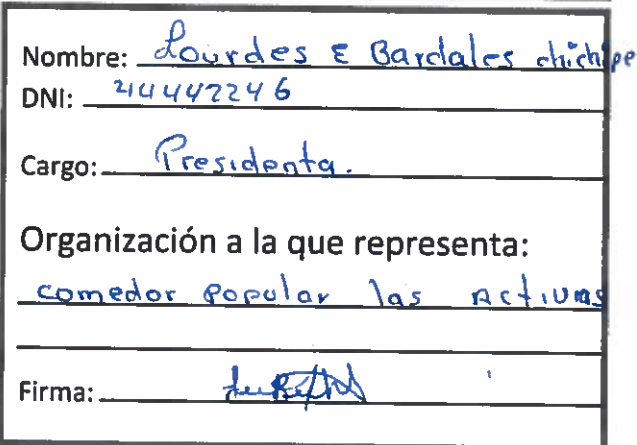 Nombre: Lourdes E Bardales chichipe
DNI: 44442246
Cargo: Presidenta.
Organización a la que representa:
comedor popular las Activas
Firma: